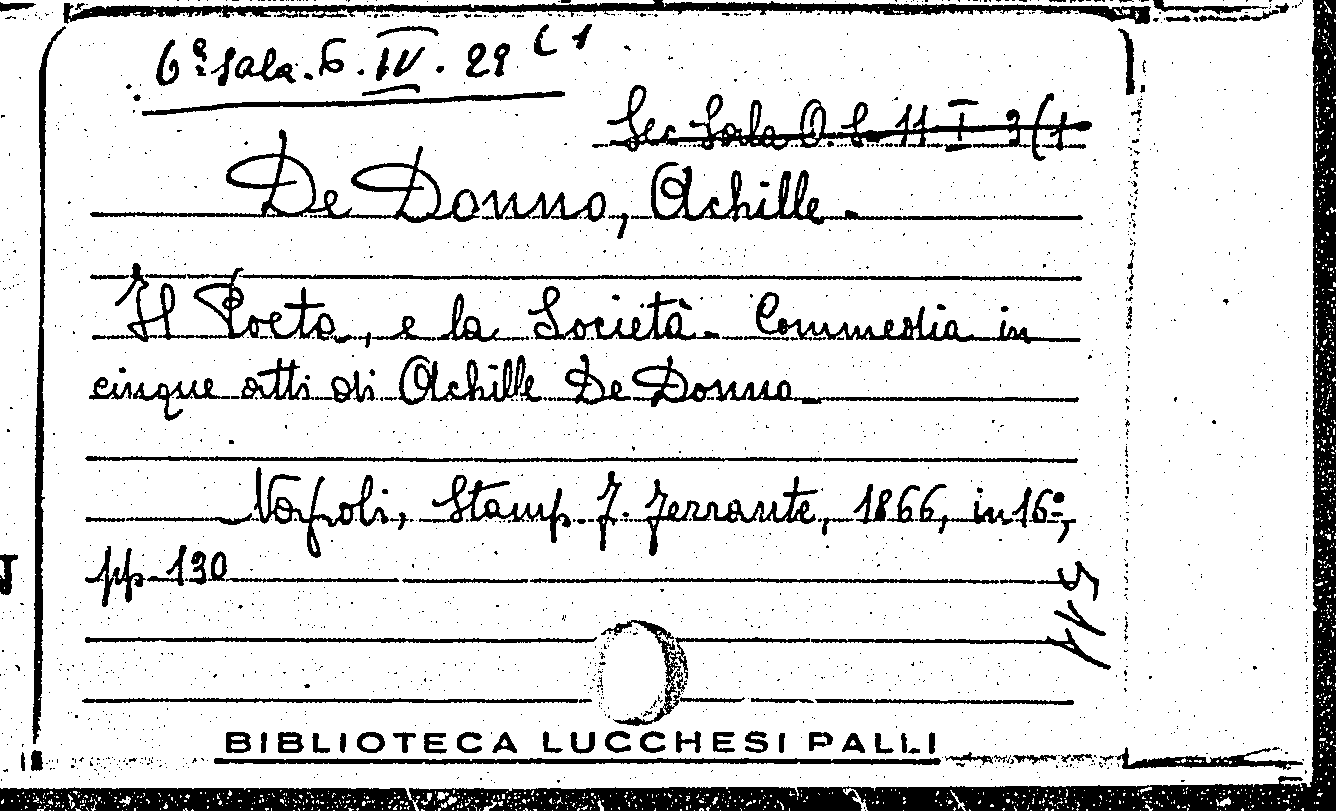 6ª Sala. 6. IV. 29 (1
Sec Sala O. S. 11 I 3 (1
De Donno, Achille.
Il Poeta, e la Società. Commedia in
cinque atti di Achille De Donno.
Napoli, Stamp. F. Ferrante, 1866, in 16º,
pp. 130
115
BIBLIOTECA LUCCHESI PALLI